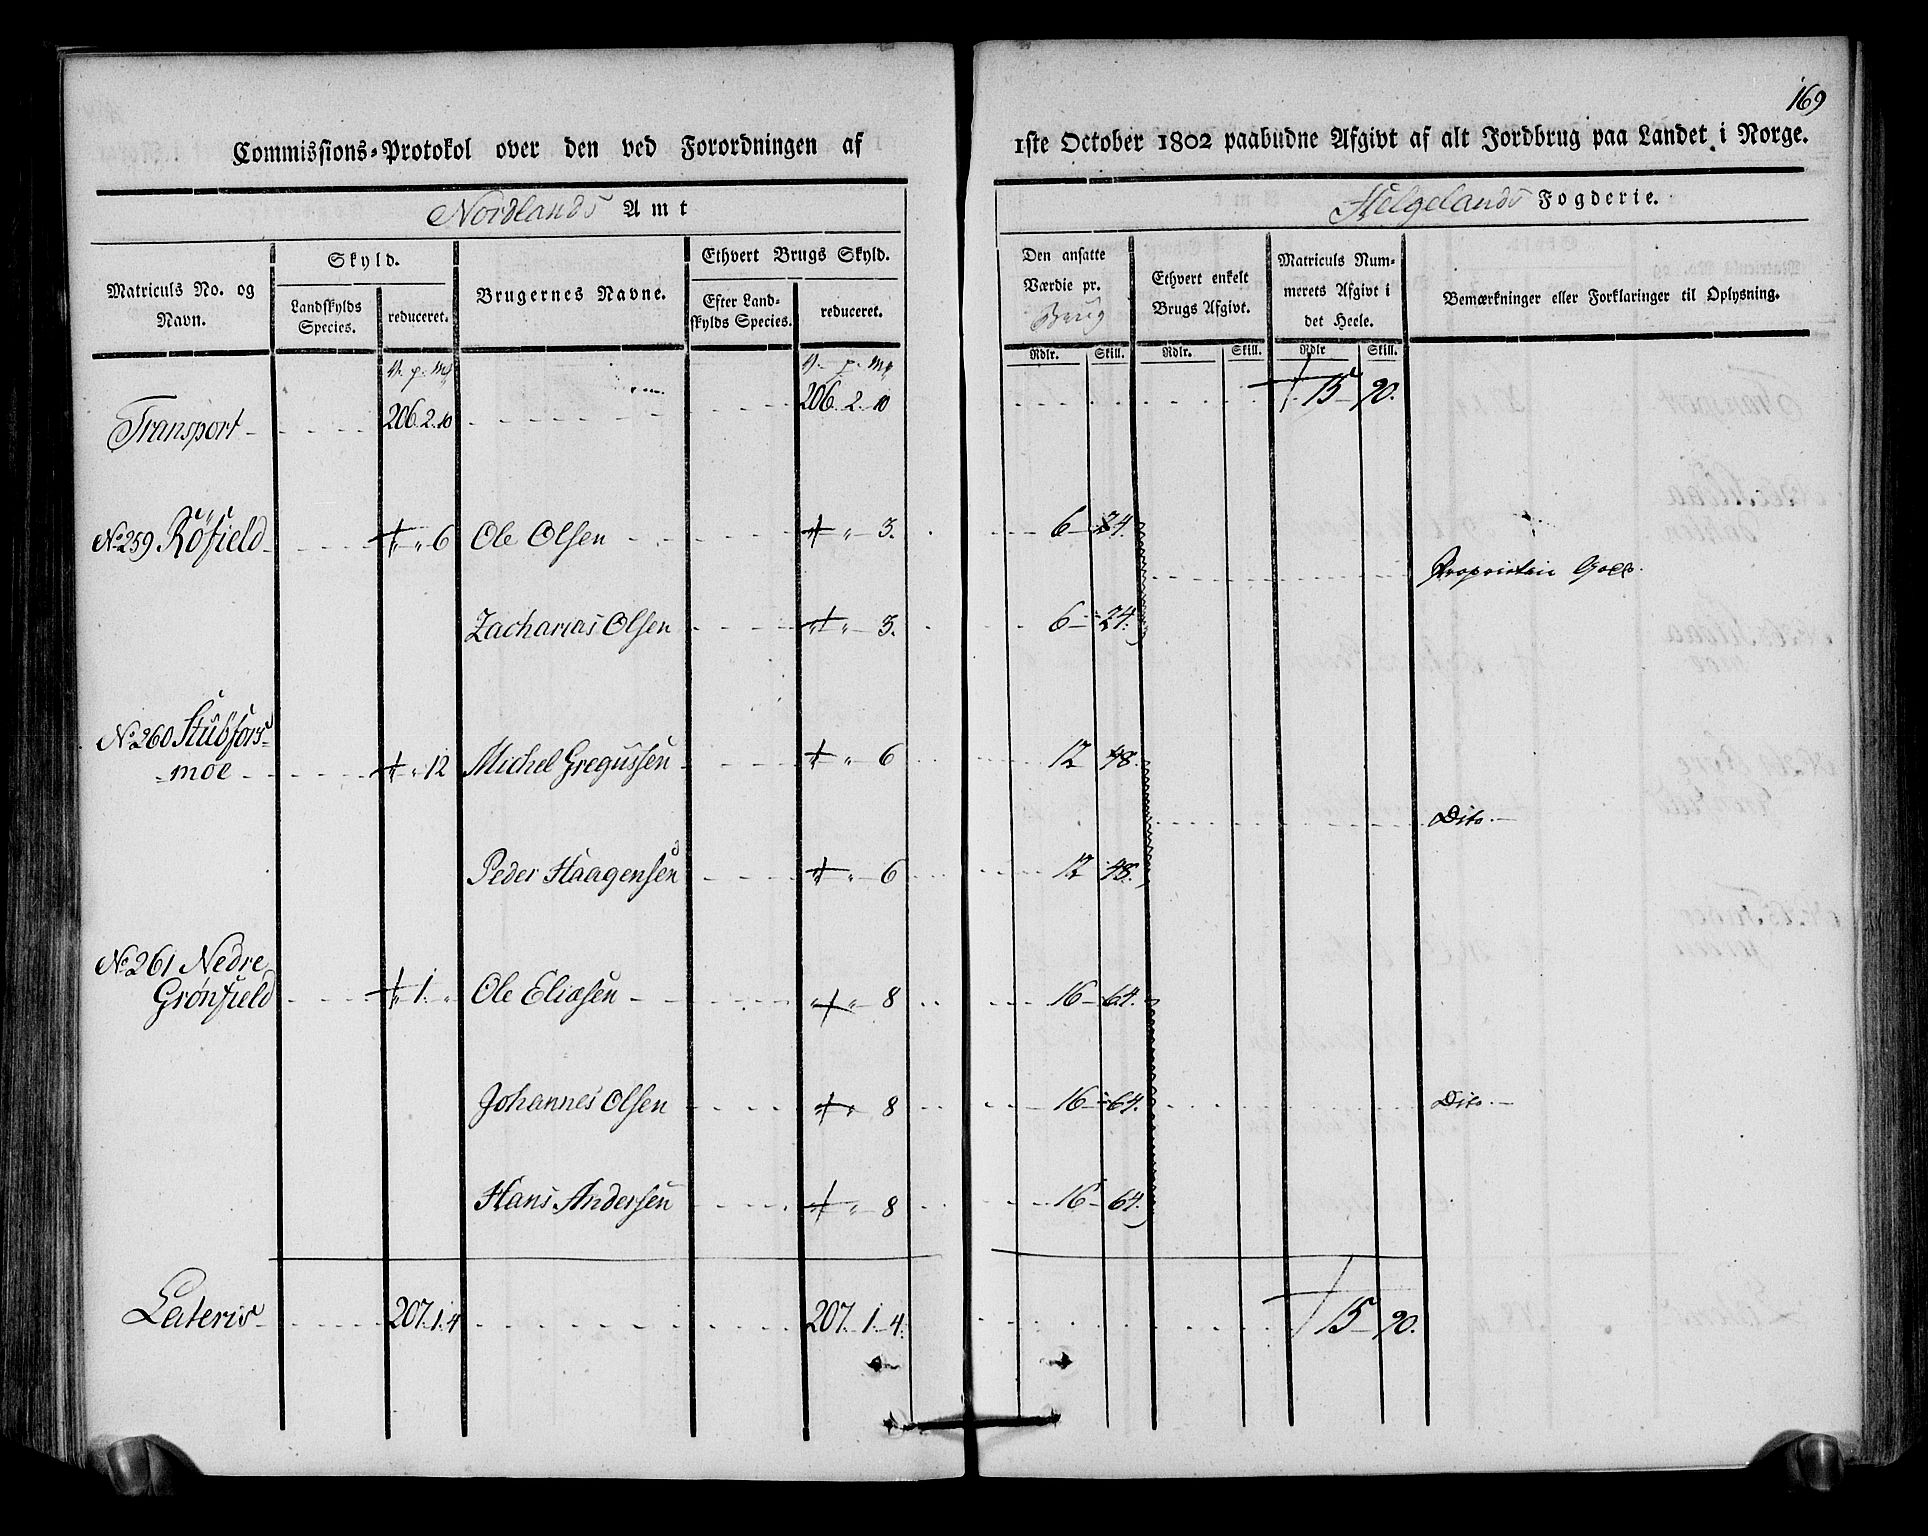 169
Commissions-Protokol over den ved Forordningen af 1ste October 1802 paabudne Afgivt af alt Jordbrug paa Landet i Norge.
Nordlands Amt Helgelands Fogderie.
Matriculs No. og Navn.
Skyld.
Landskylds Species.
reduceret.
Brugernes Navne.
Ethvert Brugs Skyld.
Efter Landskylds Species.
reduceret.
Den ansatte Værdie pr. Brug
Ethvert enkelt Brugs Afgivt.
Matriculs Nummerets Afgivt i det Heele.
Bemærkninger eller Forklaringer til Oplysning.
Rdlr. Skill. Rdlr. Skill. Rdlr Skill.
Transport 206. 2. 10 206. 2. 10 15 90.
No 259 Röfield " " 6 Ole Olsen " " 3. 6 24.
Proprietair Gods
Zacharias Olsen " " 3. 6 24.
No 260 Stubfors-
moe " " 12 Michel Gregussen " " 6 12 48.
Dito
Peder Haagensen " " 6 12 48.
No 261 Nedre
Grønfield " 1. " Ole Eliasen " " 8 16 64.
Johannes Olsen " " 8 16 64. Dito
Hans Andersen " " 8 16 64.
Lateris 207. 1. 4 207. 1. 4. 15 90.